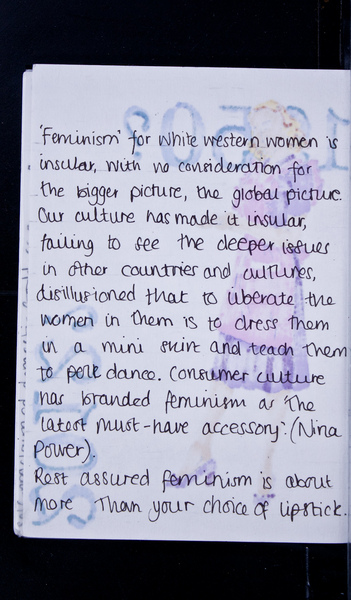 'Feminism' for white western women is
insular, with no consideration for
the bigger picture, the global picture.
Our culture has made it insular,
failing to see the deeper issues
in other countries and cultures,
disillusioned that to liberate the
women in them is to dress them
in a mini skirt and teach them
to pole dance. Consumer culture
has branded feminism as 'The
latest must-have accessory'. (Nina
Power).
Rest assured feminism is about
more than your choice of lipstick.